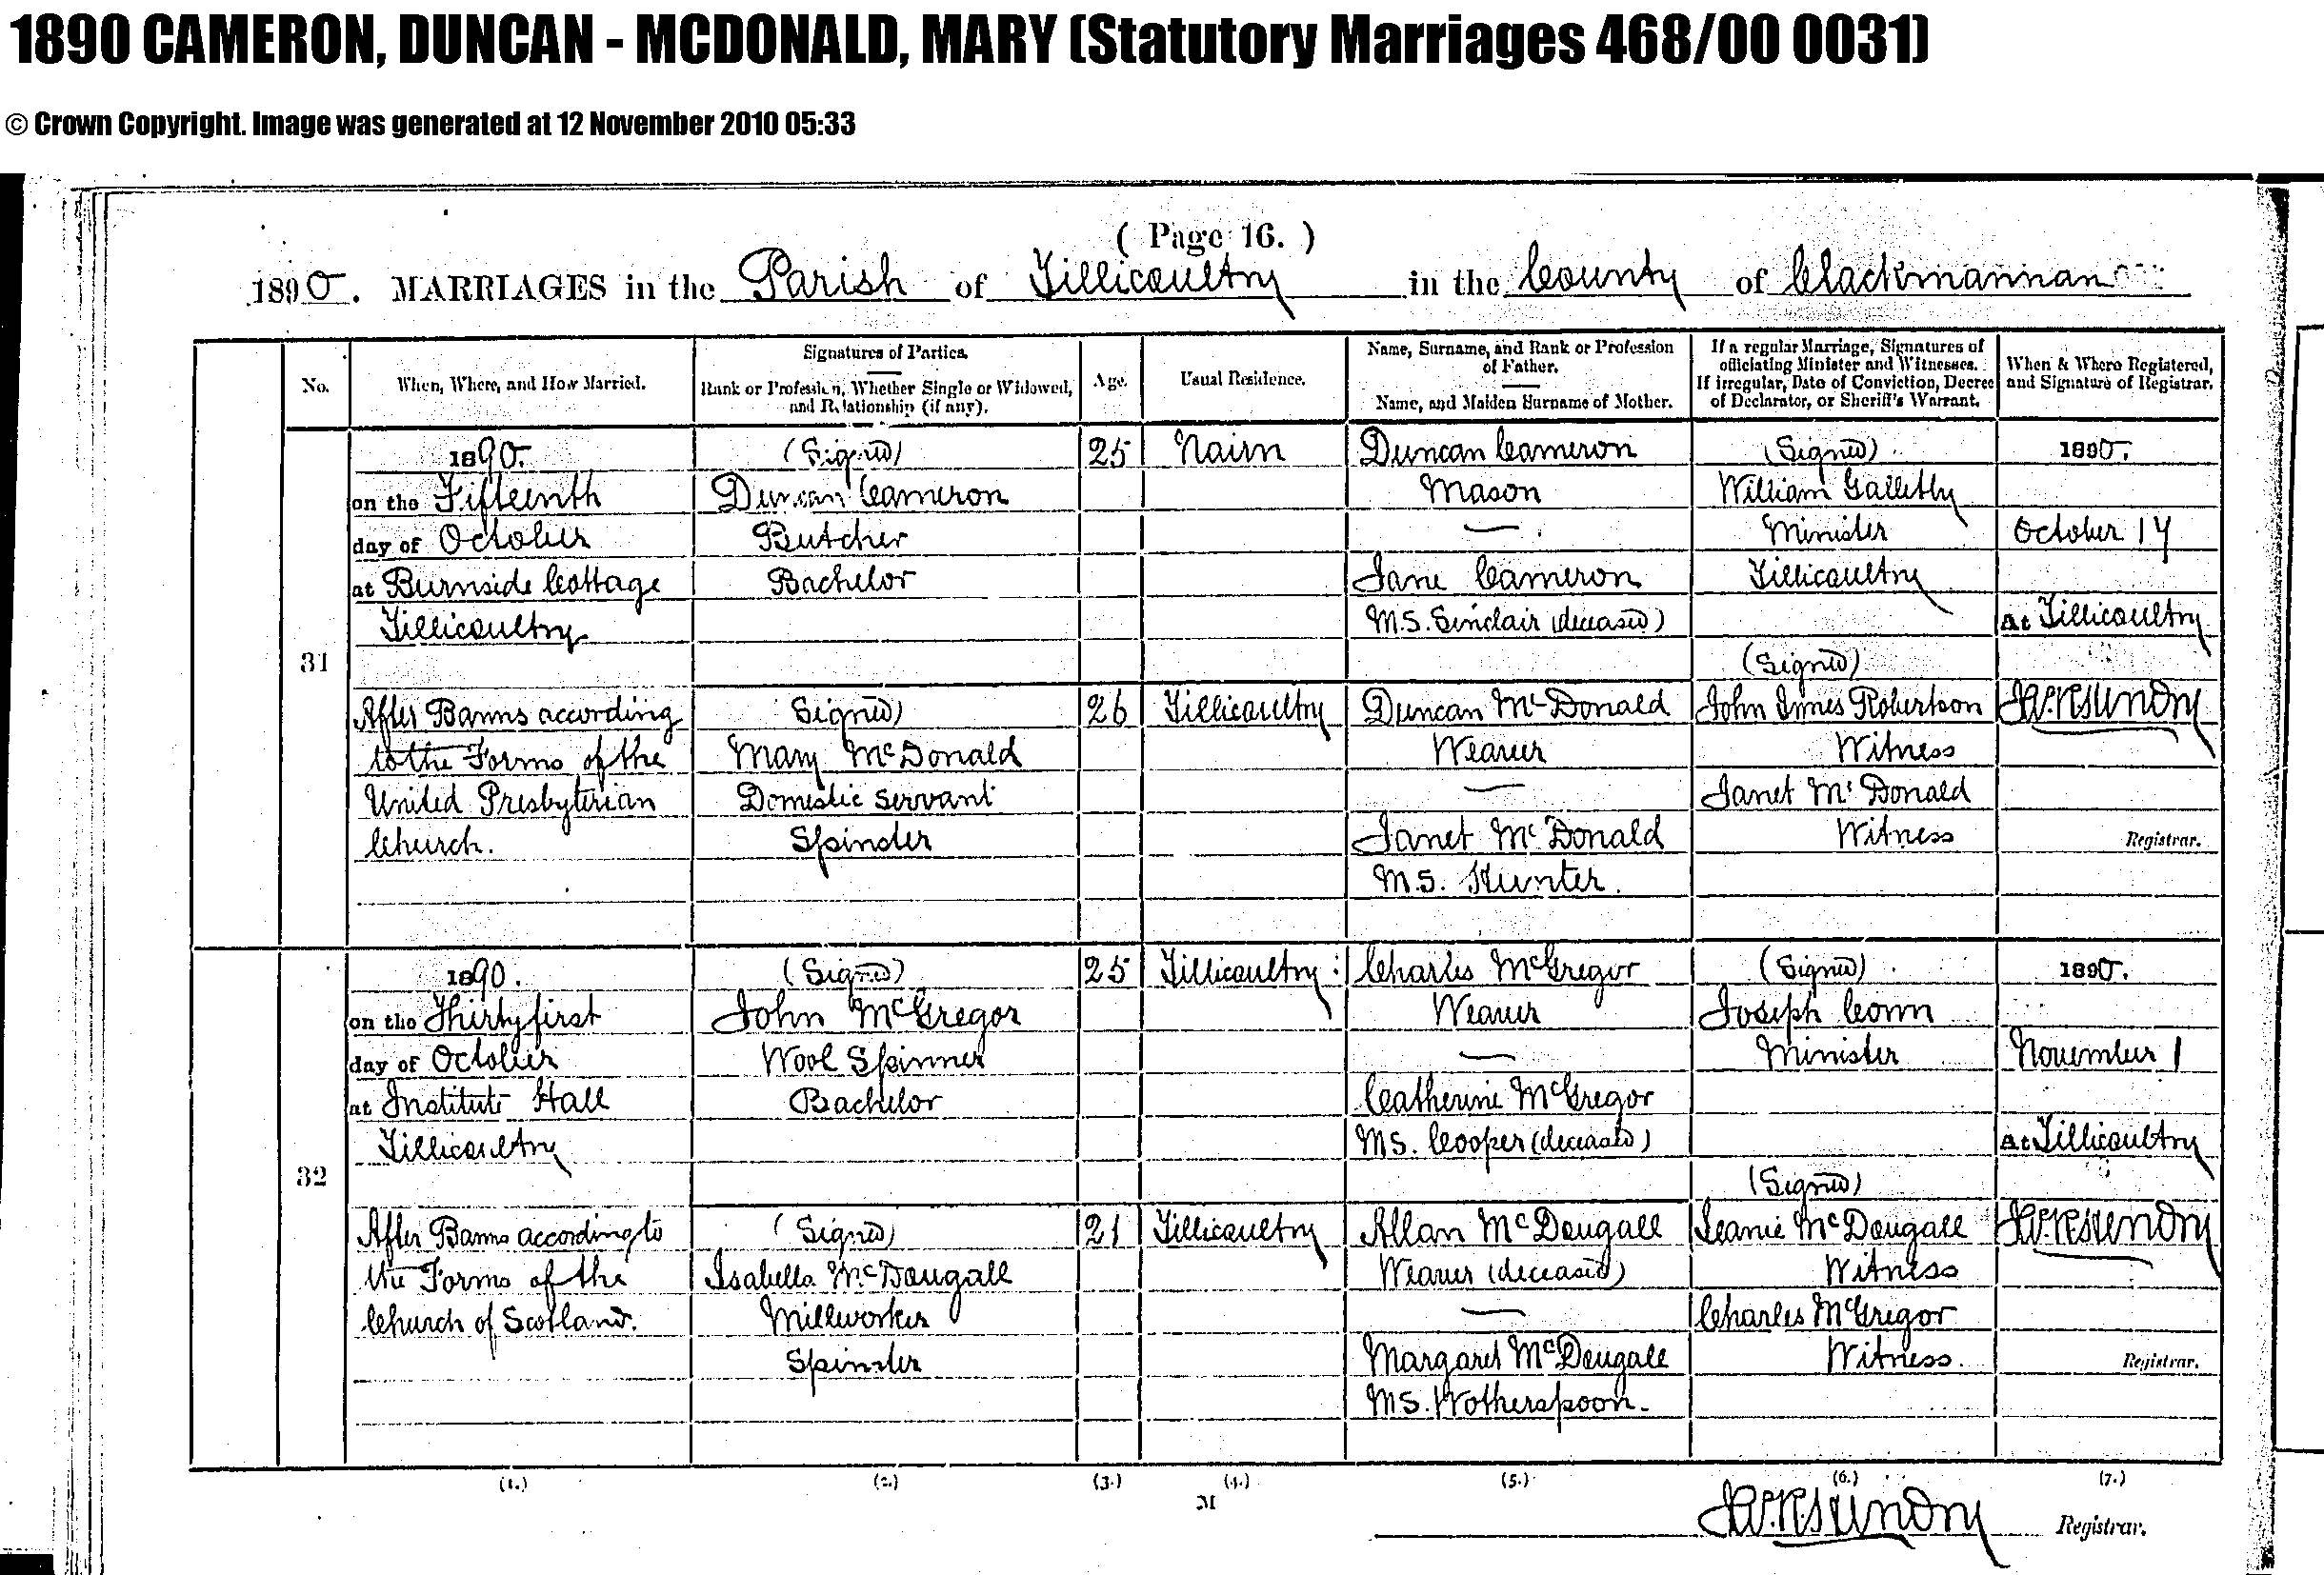 1890 CAMERON, DUNCAN - MCDONALD, MARY (Statutory Marriages 468/00 0031)
© Crown Copyright. Image was generated at 12 November 2010 05:33
( Page 16. )
1890. MARRIAGES in the Parish of Tillicoultry in the County of Clackmannan
No.
When, Where, and How Married.
Signatures of Parties.
Rank or Profession, Whether Single or Widowed,
and Relationship (if any).
Age.
Usual Residence.
Name, Surname, and Rank or Profession
of Father.
Name, and Maiden Surname of Mother.
If a regular Marriage, Signatures of
officiating Minister and Witnesses.
If irregular, Date of Conviction, Decree
of Declarator, or Sheriff's Warrant.
When & Where Registered,
and Signature of Registrar.
31
1890.
on the Fifteenth
day of October
at Burnside Cottage
Tillicoultry
After Banns according
to the Forms of the
United Presbyterian
Church.
(Signed)
Duncan Cameron
Butcher
Bachelor
Signed)
Mary McDonald
Domestic Servant
Spinster
25
26
Nairn
Tillicoultry
Duncan Cameron
Mason
Jane Cameron
M.S. Sinclair (deceased)
Duncan McDonald
Weaver
Janet McDonald
M.S. Hunter.
(Signed)
William Galletly
Minister
Tillicoultry
(Signed)
John Innes Robertson
Witness
Janet McDonald
Witness
1890.
October 17
At Tillicoultry
Registrar.
32
1890.
on the Thirty first
day of October
at Institute Hall
Tillicoultry
After Banns according to
the Forms of the
Church of Scotland.
(Signed)
John McGregor
Wool Spinner
Bachelor
(Signed)
Isabella McDougall
Millworker
Spinster
25
21
Tillicoultry
Tillicoultry
Charles McGregor
Weaver
Catherine McGregor
MS. Cooper (deceased)
Allan McDougall
Weaver (deceased)
Margaret McDougall
MS. Wotherspoon.
(Signed)
Joseph Conn
Minister
(Signed)
Jeanie McDougall
Witness
Charles McGregor
Witness.
1890.
November 1
At Tillicoultry
Registrar.
(1.) (2.) (3.) (4.) (5.) (6.) (7.)
M
Registrar.